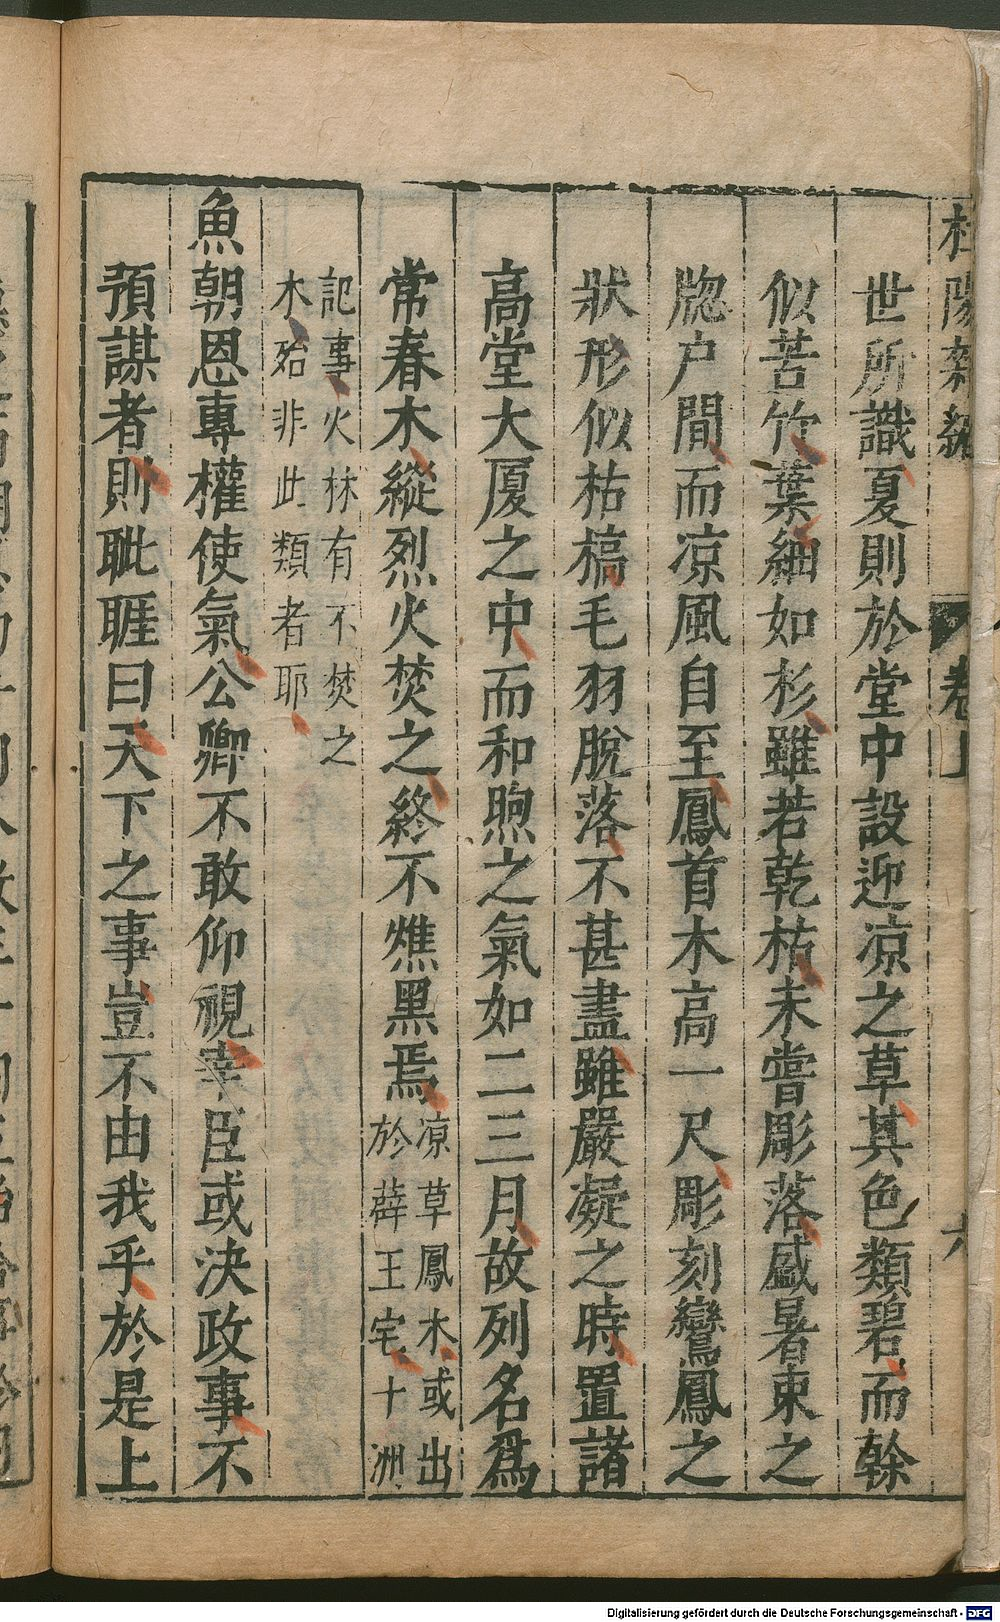 杜陽雜編 卷上 六
世所識夏則於堂中設迎凉之草其色類碧而榦
似苦竹葉細如杉雖若乾枯未嘗彫落盛暑束之
牎户間而凉風自至鳳首木高一尺彫刻鸞鳳之
狀形似枯槁毛羽脫落不甚盡雖嚴凝之時置諸
高堂大厦之中而和煦之氣如二三月故列名爲
常春木縱烈火焚之終不燋黑焉
凉草鳳木或出
於薛王宅十洲
記事火林有不焚之
木殆非此類者耶
魚朝恩專權使氣公卿不敢仰視宰臣或決政事不
預謀者則眦睚曰天下之事豈不由我乎於是上
Digitalisierung gefördert durch die Deutsche Forschungsgemeinschaft - DFG